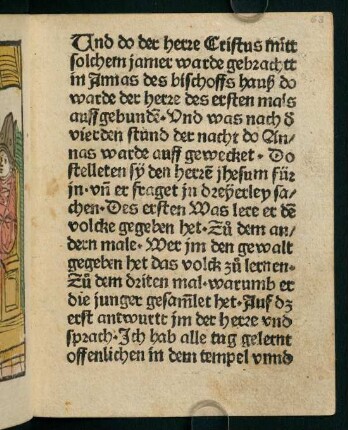 63
Und do der herre Cristus mitt
solchem jamer warde gebrachtt
in Annas des bischoffs hauß do
warde der herre des ersten mals
auffgebundē· Vnd was nach d̕
vierden stund der nacht do An/
nas warde auff gewecket · Do
stelleten sy̆ den herrē jhesum für
in· vn̄ er fraget in drey̆erley sa/
chen· Des ersten Was lere er dē
volcke gegeben het· Zů dem an/
dern male· Wer jm den gewalt
gegeben het das volck zů lernen·
Zů dem driten mal· warumb er
die junger gesam̄let het· Auf dz
erst antwurtt jm der herre vnd
sprach· Ich hab alle tag gelernt
offenlichen in dem tempel vnnd